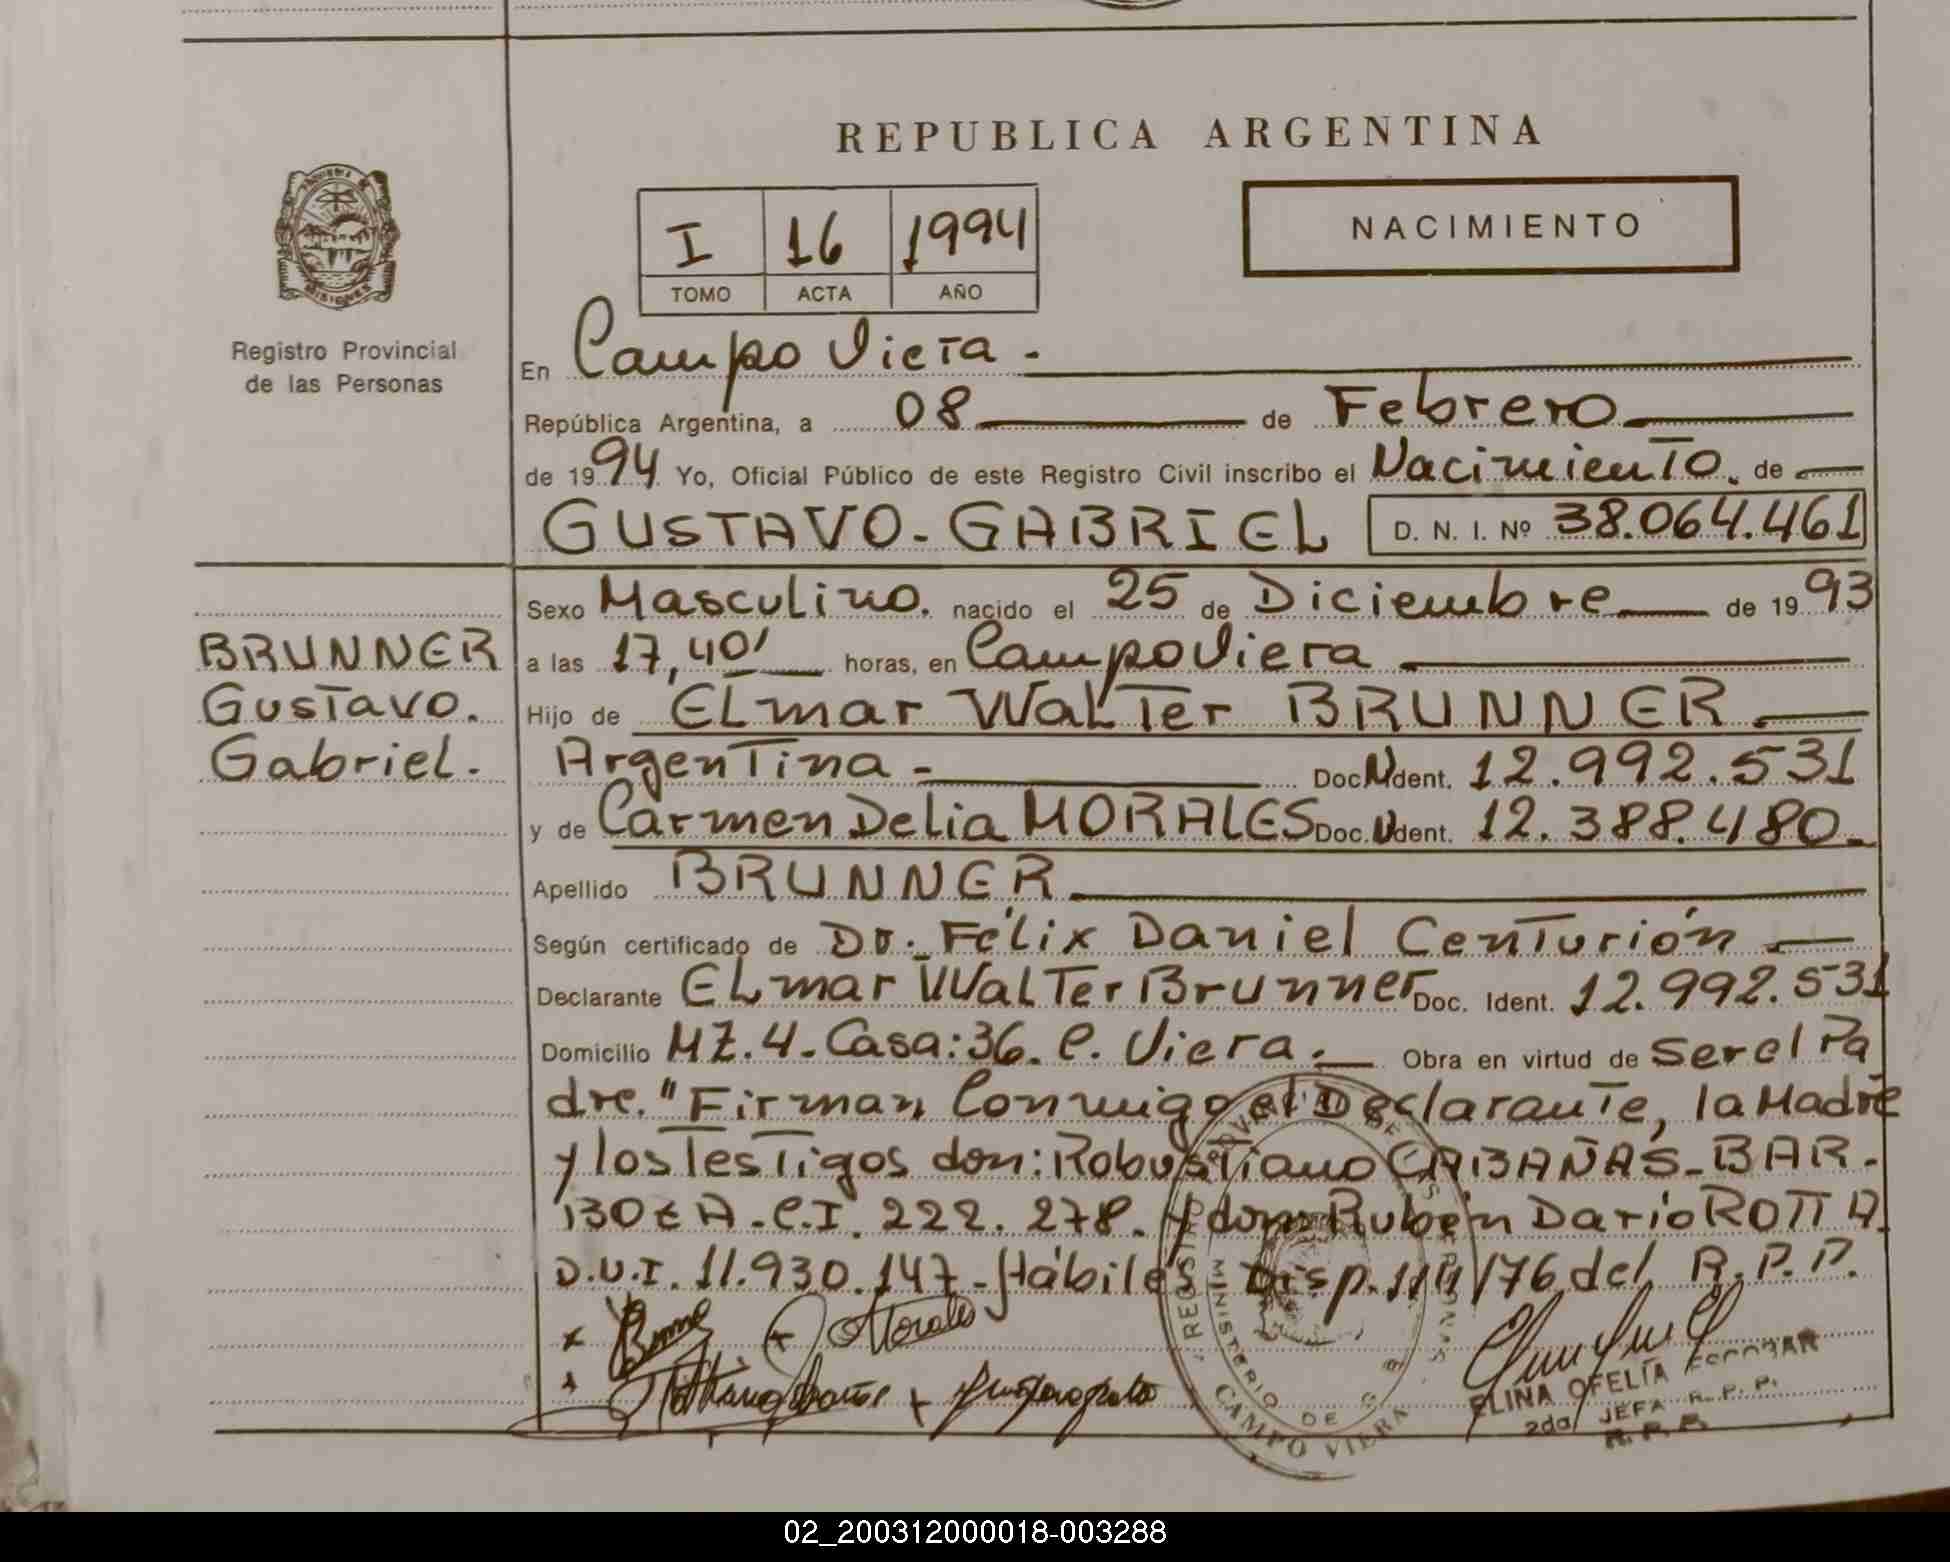 REPUBLICA ARGENTINA
I 16 1994
TOMO ACTA AÑO
NACIMIENTO
MISIONES
Registro Provincial
de las Personas
En Campo Viera.
República Argentina, a 08 de Febrero
de 1994 Yo, Oficial Público de este Registro Civil inscribo el Nacimiento. de
GUSTAVO-GABRIEL D. N. I. Nº 38.064.461
BRUNNER
Gustavo.
Gabriel.
Sexo Masculino. nacido el 25 de Diciembre de 1993
a las 17,40' horas, en Campo Viera
Hijo de ELmar WaLTer BRUNNER.
ArgenTina - Doc. Ident. 12.992.531
y de Carmen Delia MORALES Doc. Ident. 12.388.480.
Apellido BRUNNER
Según certificado de Dr. Félix Daniel CenTurión
Declarante ELmar WalTer Brunner Doc. Ident. 12.992.531
Domicilio MZ.4-Casa:36. C. Viera. Obra en virtud de ser el Pa
dre." Firman Conmigo el Declarante, la Madre
y los TesTigos don: Robustiano CABAÑAS-BAR-
BOZA-C.I. 222.278. y don: Rubén Darío ROTTA.
D.U.I. 11.930.147-Hábiles Disp. 114/76 del R.P.P.
Morales
CAMPO VIERA
ELINA OFELÍA ESCOBAR
2da JEFA R.P.P.
R.P.P.
02_200312000018-003288